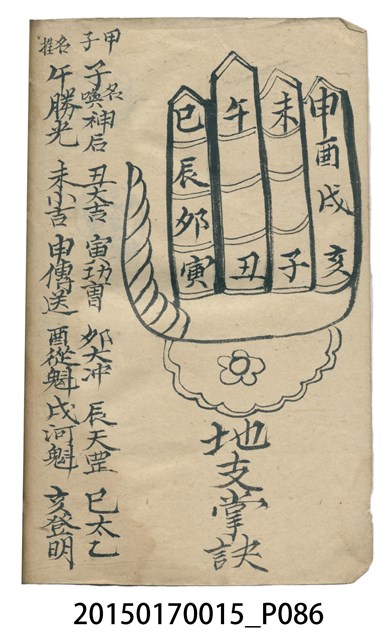 巳 午 未 申
酉
辰 戌
卯
寅 丑 子 亥
地支掌訣
甲子
子名喚神后 丑大吉 寅功曹 卯太冲 辰天罡 巳太乙
午勝光 未小吉 申傳送 酉從魁 戌河魁 亥登明
20150170015_P086